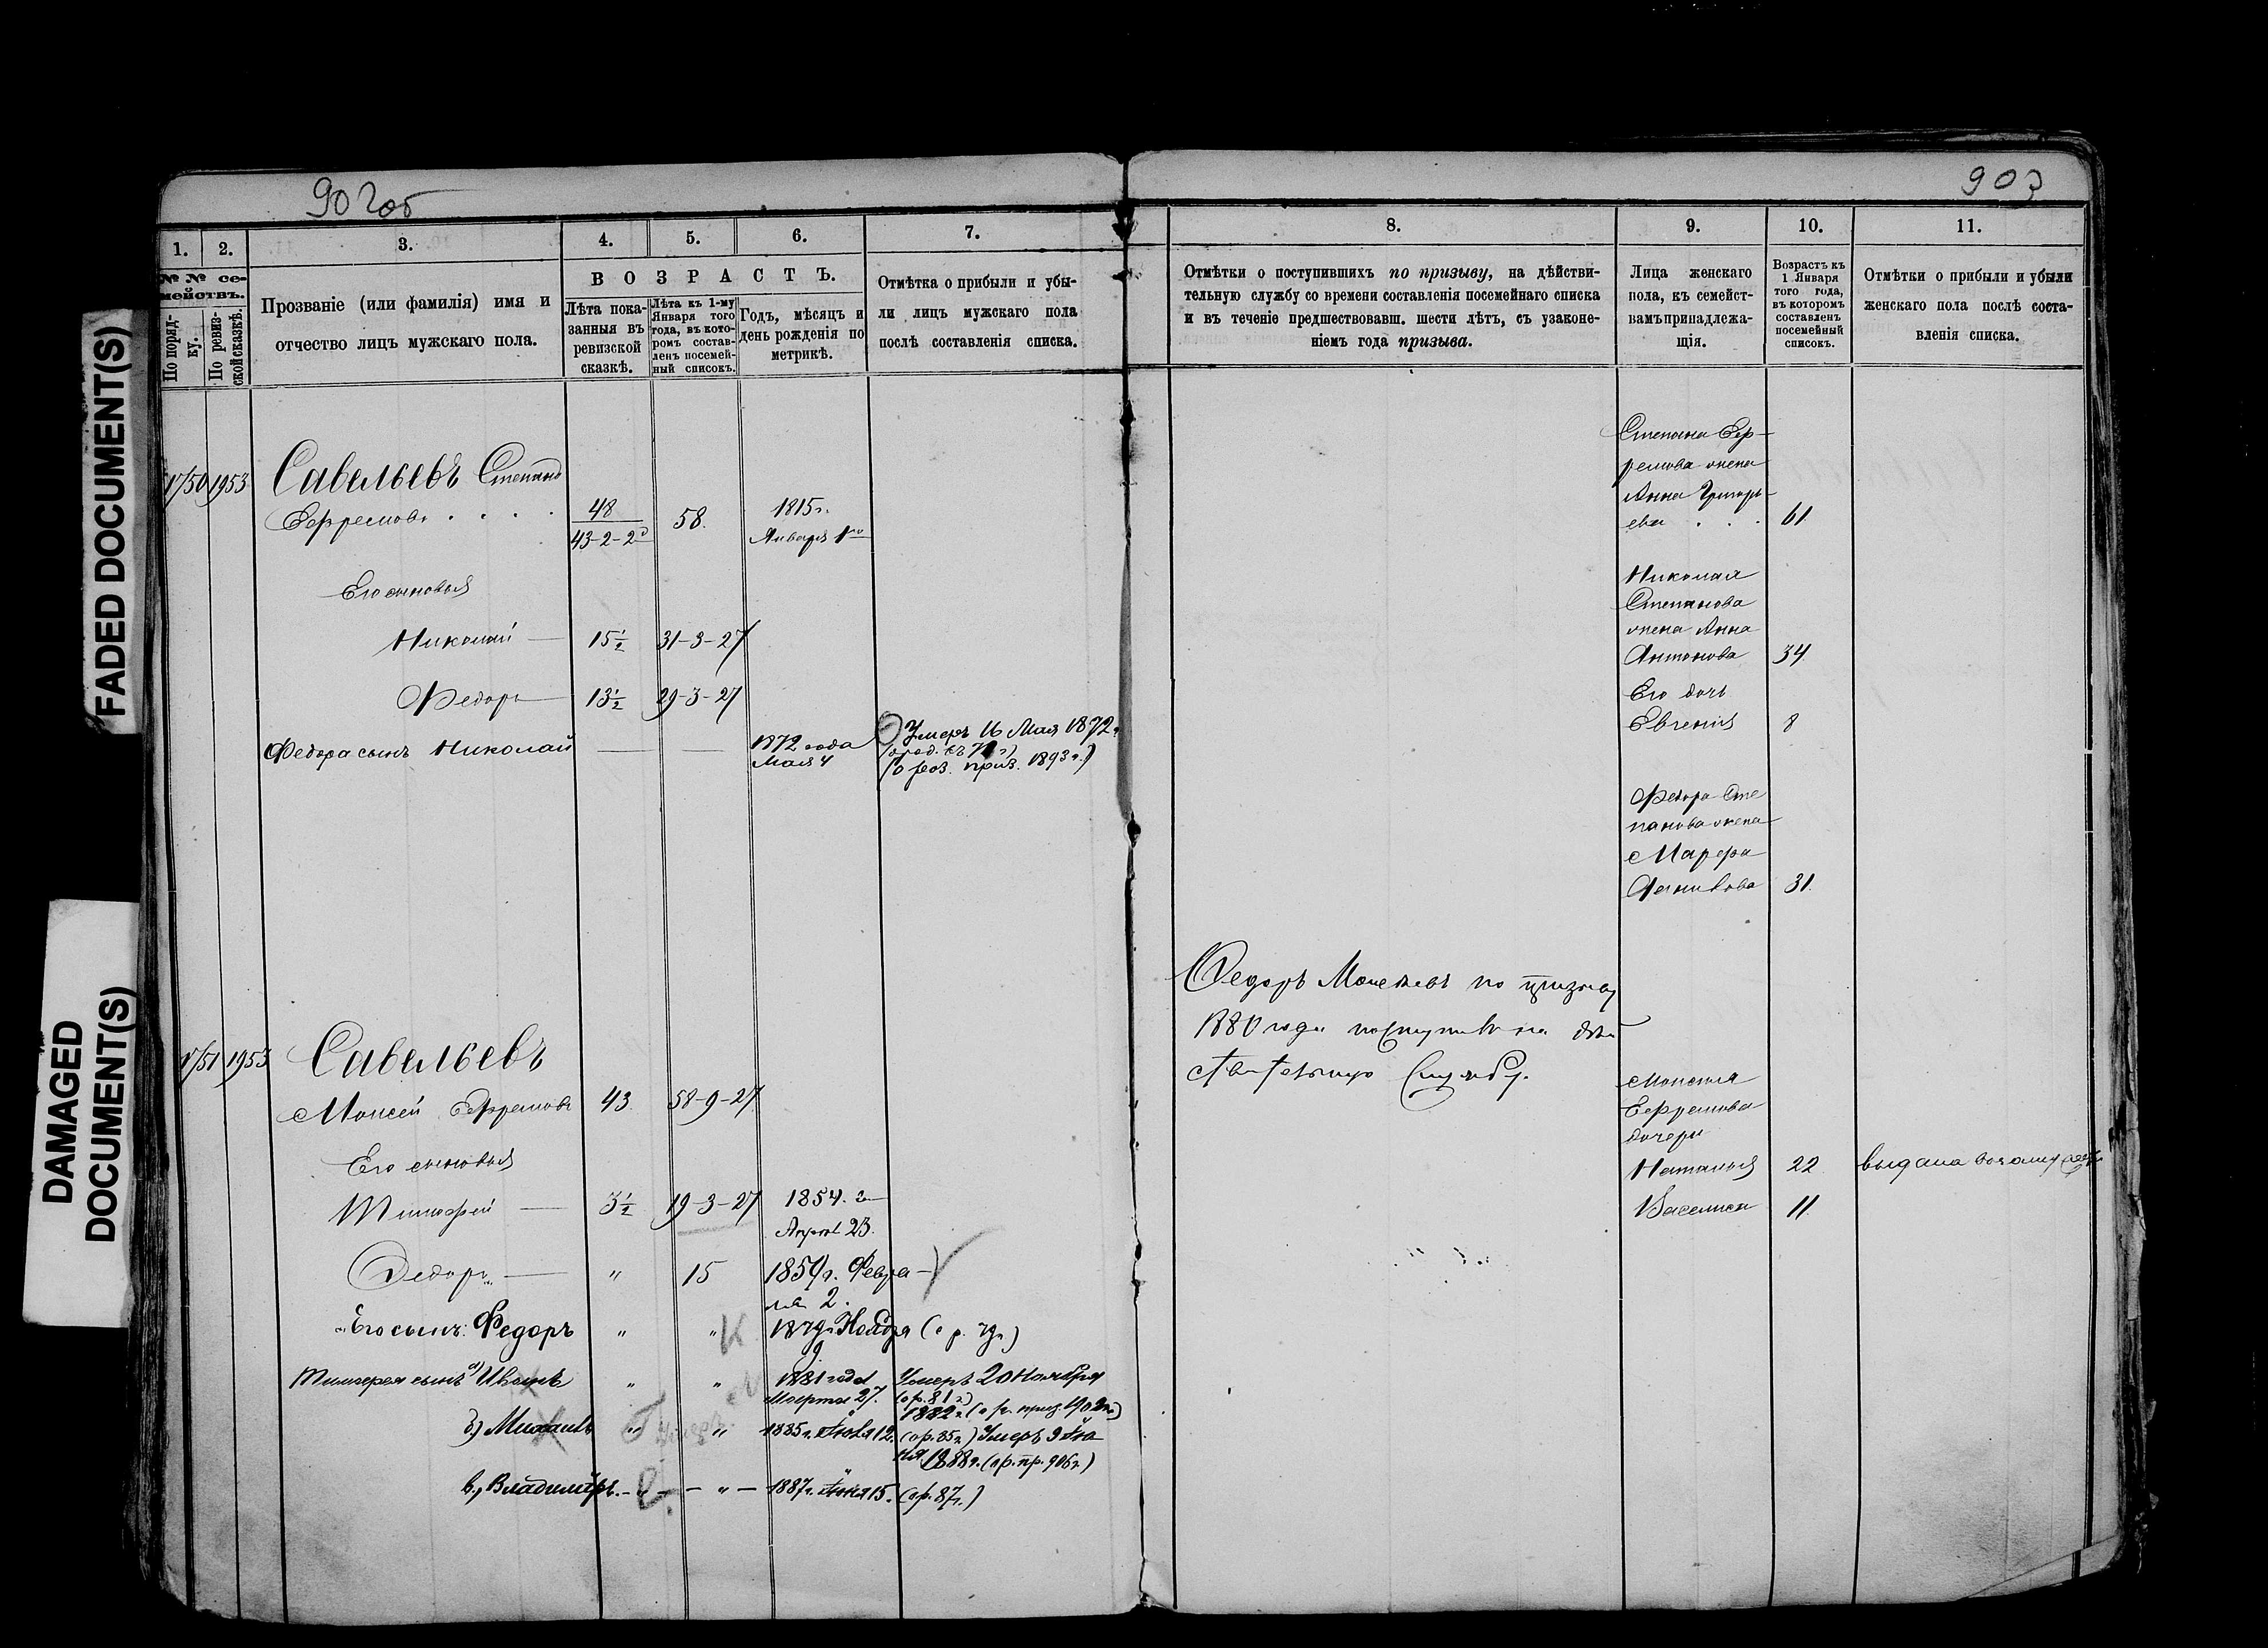 902об
903
FADED DOCUMENT(S)
DAMAGED
DOCUMENT(S)
1.
2.
3.
4.
5.
6.
7.
№ № се-
мействъ.
По поряд-
ку.
По ревиз-
ской сказкѣ.
Прозваніе (или фамилія) имя и
отчество лицъ мужскаго пола.
ВОЗРАСТЪ.
Лѣта пока-
занныя въ
ревизской
сказкѣ.
Лѣта къ 1-му
Января того
года, въ кото-
ромъ состав-
ленъ посемей-
ный списокъ.
Годъ, мѣсяцъ и
день рожденія по
метрикѣ.
Отмѣтка о прибыли и убы-
ли лицъ мужскаго пола
послѣ составленія списка.
1953 Савельевъ Степанъ
Ефремовъ . . . .
48
43-2-2
58.
1815 г.
Января 1го
Его сыновья
Николай — 15½ 31-3-27
Федоръ — 13½ 29-3-27
Федора сынъ Николай — — 1872 года
Мая 4
Умеръ 16 Мая 1872 г.
приз. 1893 г.)
1953 Савельевъ
Моисей Ефремовъ 43 58-9-27
Его сыновья
Тимофей — 3½ 19-3-27 1854. г.
Апрѣля 23.
Федоръ — " 15 1859 г. Февра-
ля 2.
Его сынъ: Федоръ " " К 1879 г. Ноября (о р. 79 г.)
9
Тимофея сынъ а) Иванъ " " 1881 года
Марта 27.
Умеръ 20 Ноября
(о р. 81 г.)
1882 г. (о р. приз. 1902 г.)
б) Михаилъ " " 1885 г. 12. (о р. 85 г.) Умеръ 9 Iю
1888 г. (о р. пр. 906 г.)
в., Владиміръ. — " — 1887 г. Iюля 15. (о р. 87 г.)
8.
9.
10.
11.
Отмѣтки о поступившихъ по призыву, на дѣйстви-
тельную службу со времени составленія посемейнаго списка
и въ теченіе предшествовавш. шести лѣтъ, съ узаконе-
ніемъ года призыва.
Лица женскаго
пола, къ семейст-
вамъ принадлежа-
щія.
Возрастъ къ
1 Января
того года,
въ которомъ
составленъ
посемейный
списокъ.
Отмѣтки о прибыли и убыли
женскаго пола послѣ соста-
вленія списка.
Степана Еф-
ремова жена
Анна Григорь-
ева . . . 61
Николая
Степанова
жена Анна
Антонова 34
Его дочь
Евгенія 8
Федора Сте
панова жена
Марфа
31.
Федоръ Моисеевъ по призыву
1880 года поступилъ на дѣй
ствительную службу.
Моисея
Ефремова
дочери
Наталья 22
Василиса 11.
выдана въ замуж